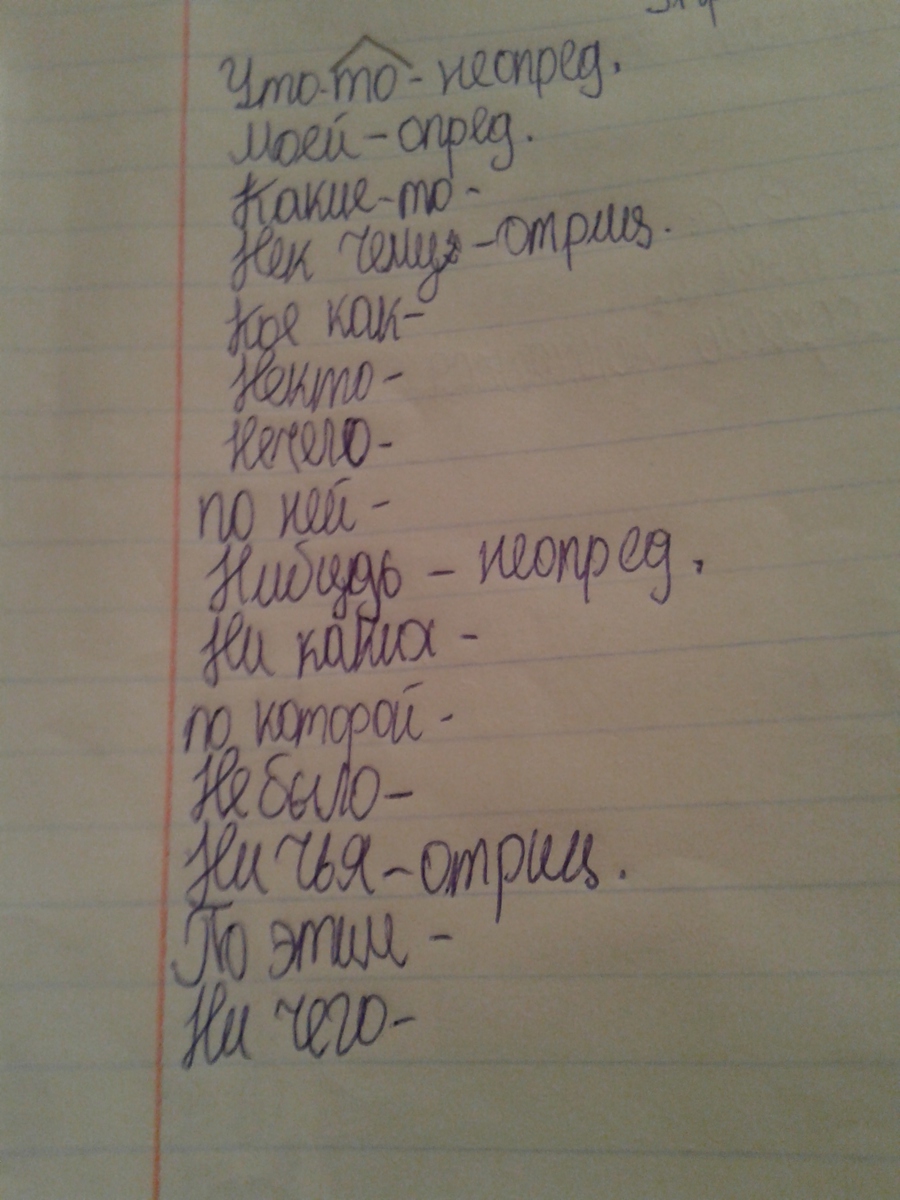 Что-то - неопред.
Моей - опред.
Какие-то -
Нек чему - отриц.
Кое как -
Некто -
Нечего -
по ней -
Нибудь - неопред.
Ни каких -
по которой -
Небыло -
Ни чья - отриц.
По этим -
Ни чего -